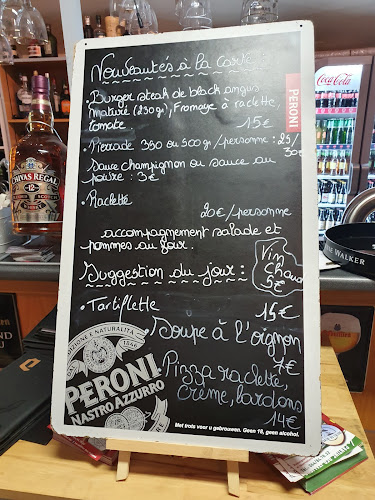 Nouveautés à la carte
• Burger steak de black angus
maturé (250gr), Fromage à raclette,
tomate 15€
• Pierrade 350 ou 500gr/personne : 25/
30€
Sauce champignon ou sauce au
poivre : 3€
• Raclette
20€/personne
accompagnement salade et
pommes au four.
Vin
Chaud
5€
Suggestion du jour :
• Tartiflette 15€
• Soupe à l'oignon
7€
Pizza raclette,
crème, lardons
14€
PERONI
BIRRA
NASTRO AZZURRO
Met trots voor u gebrouwen. Geen 18, geen alcohol.
PERONI
CHIVAS REGAL
12
Coca-Cola
WALKER